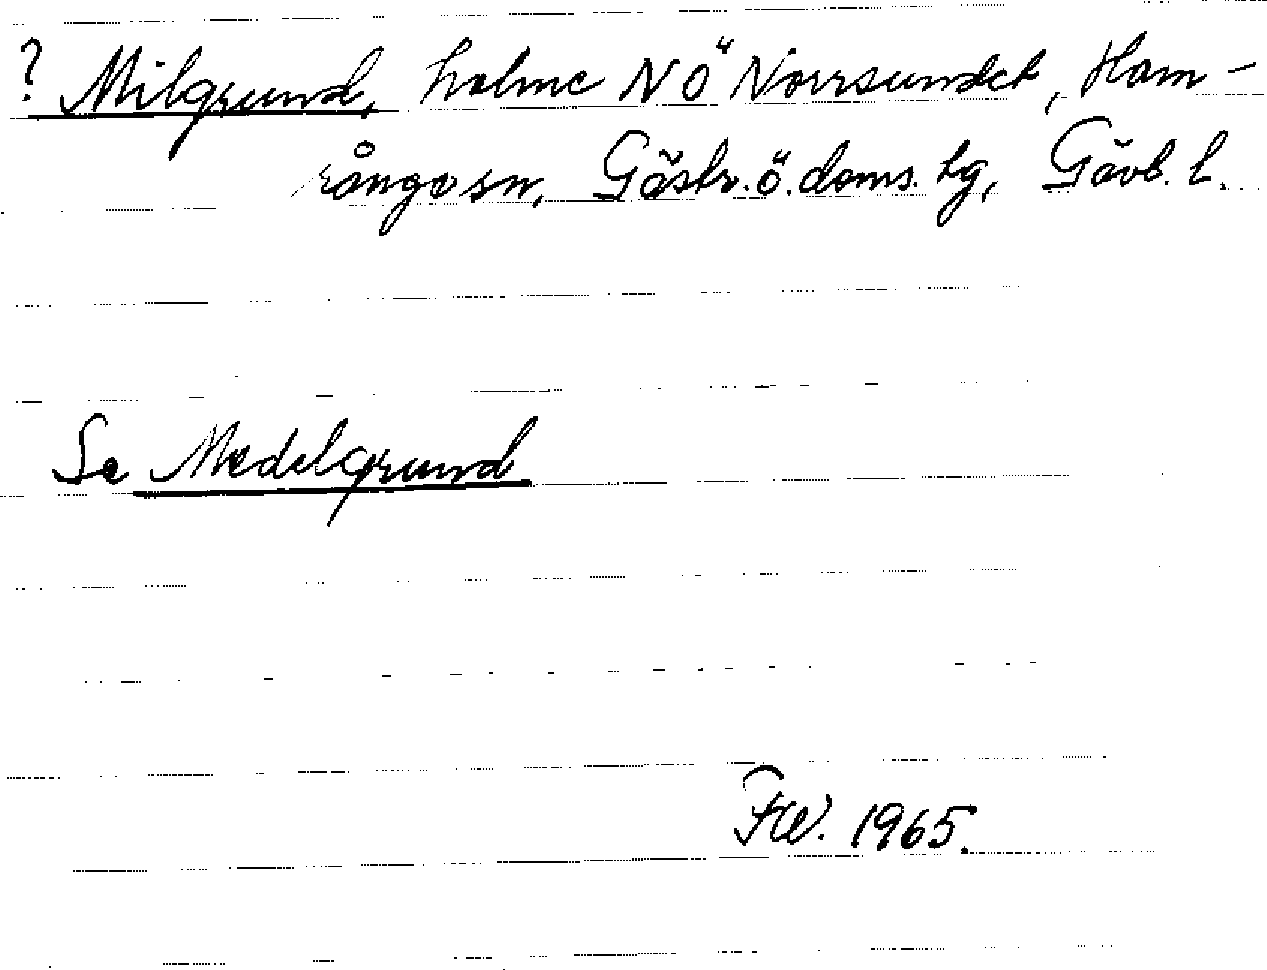 ? Milgrund, holme NÖ Norrsundet, Ham-
rånge sn, Gästr. ö. doms. tg, Gävl. l.
Se Medelgrund
FW. 1965.